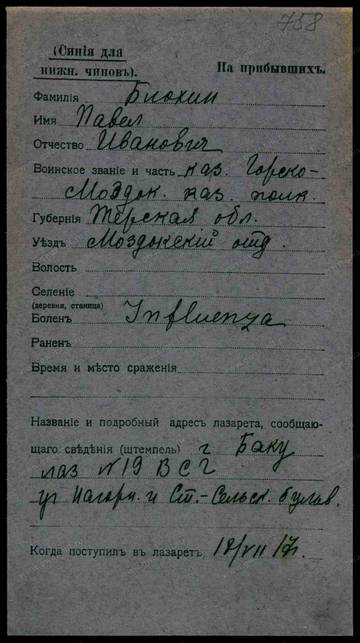 758
(Синія для
нижн. чиновъ).
На прибывшихъ.
Фамилія Блохин
Имя Павел
Отчество Иванович
Воинское званіе и часть каз. Горско-
Моздок. каз. полк.
Губернія Терская обл.
Уѣздъ Моздокскій отд.
Волость
Селеніе
(деревня, станица)
Боленъ Influenza
Раненъ
Время и мѣсто сраженія
Названіе и подробный адресъ лазарета, сообщаю-
щаго свѣдѣнія (штемпель) г Баку
лаз N 19 ВСГ
уг Нагорн. и Ст.-Сельск. булив.
Когда поступилъ въ лазаретъ 18/VII 17г.